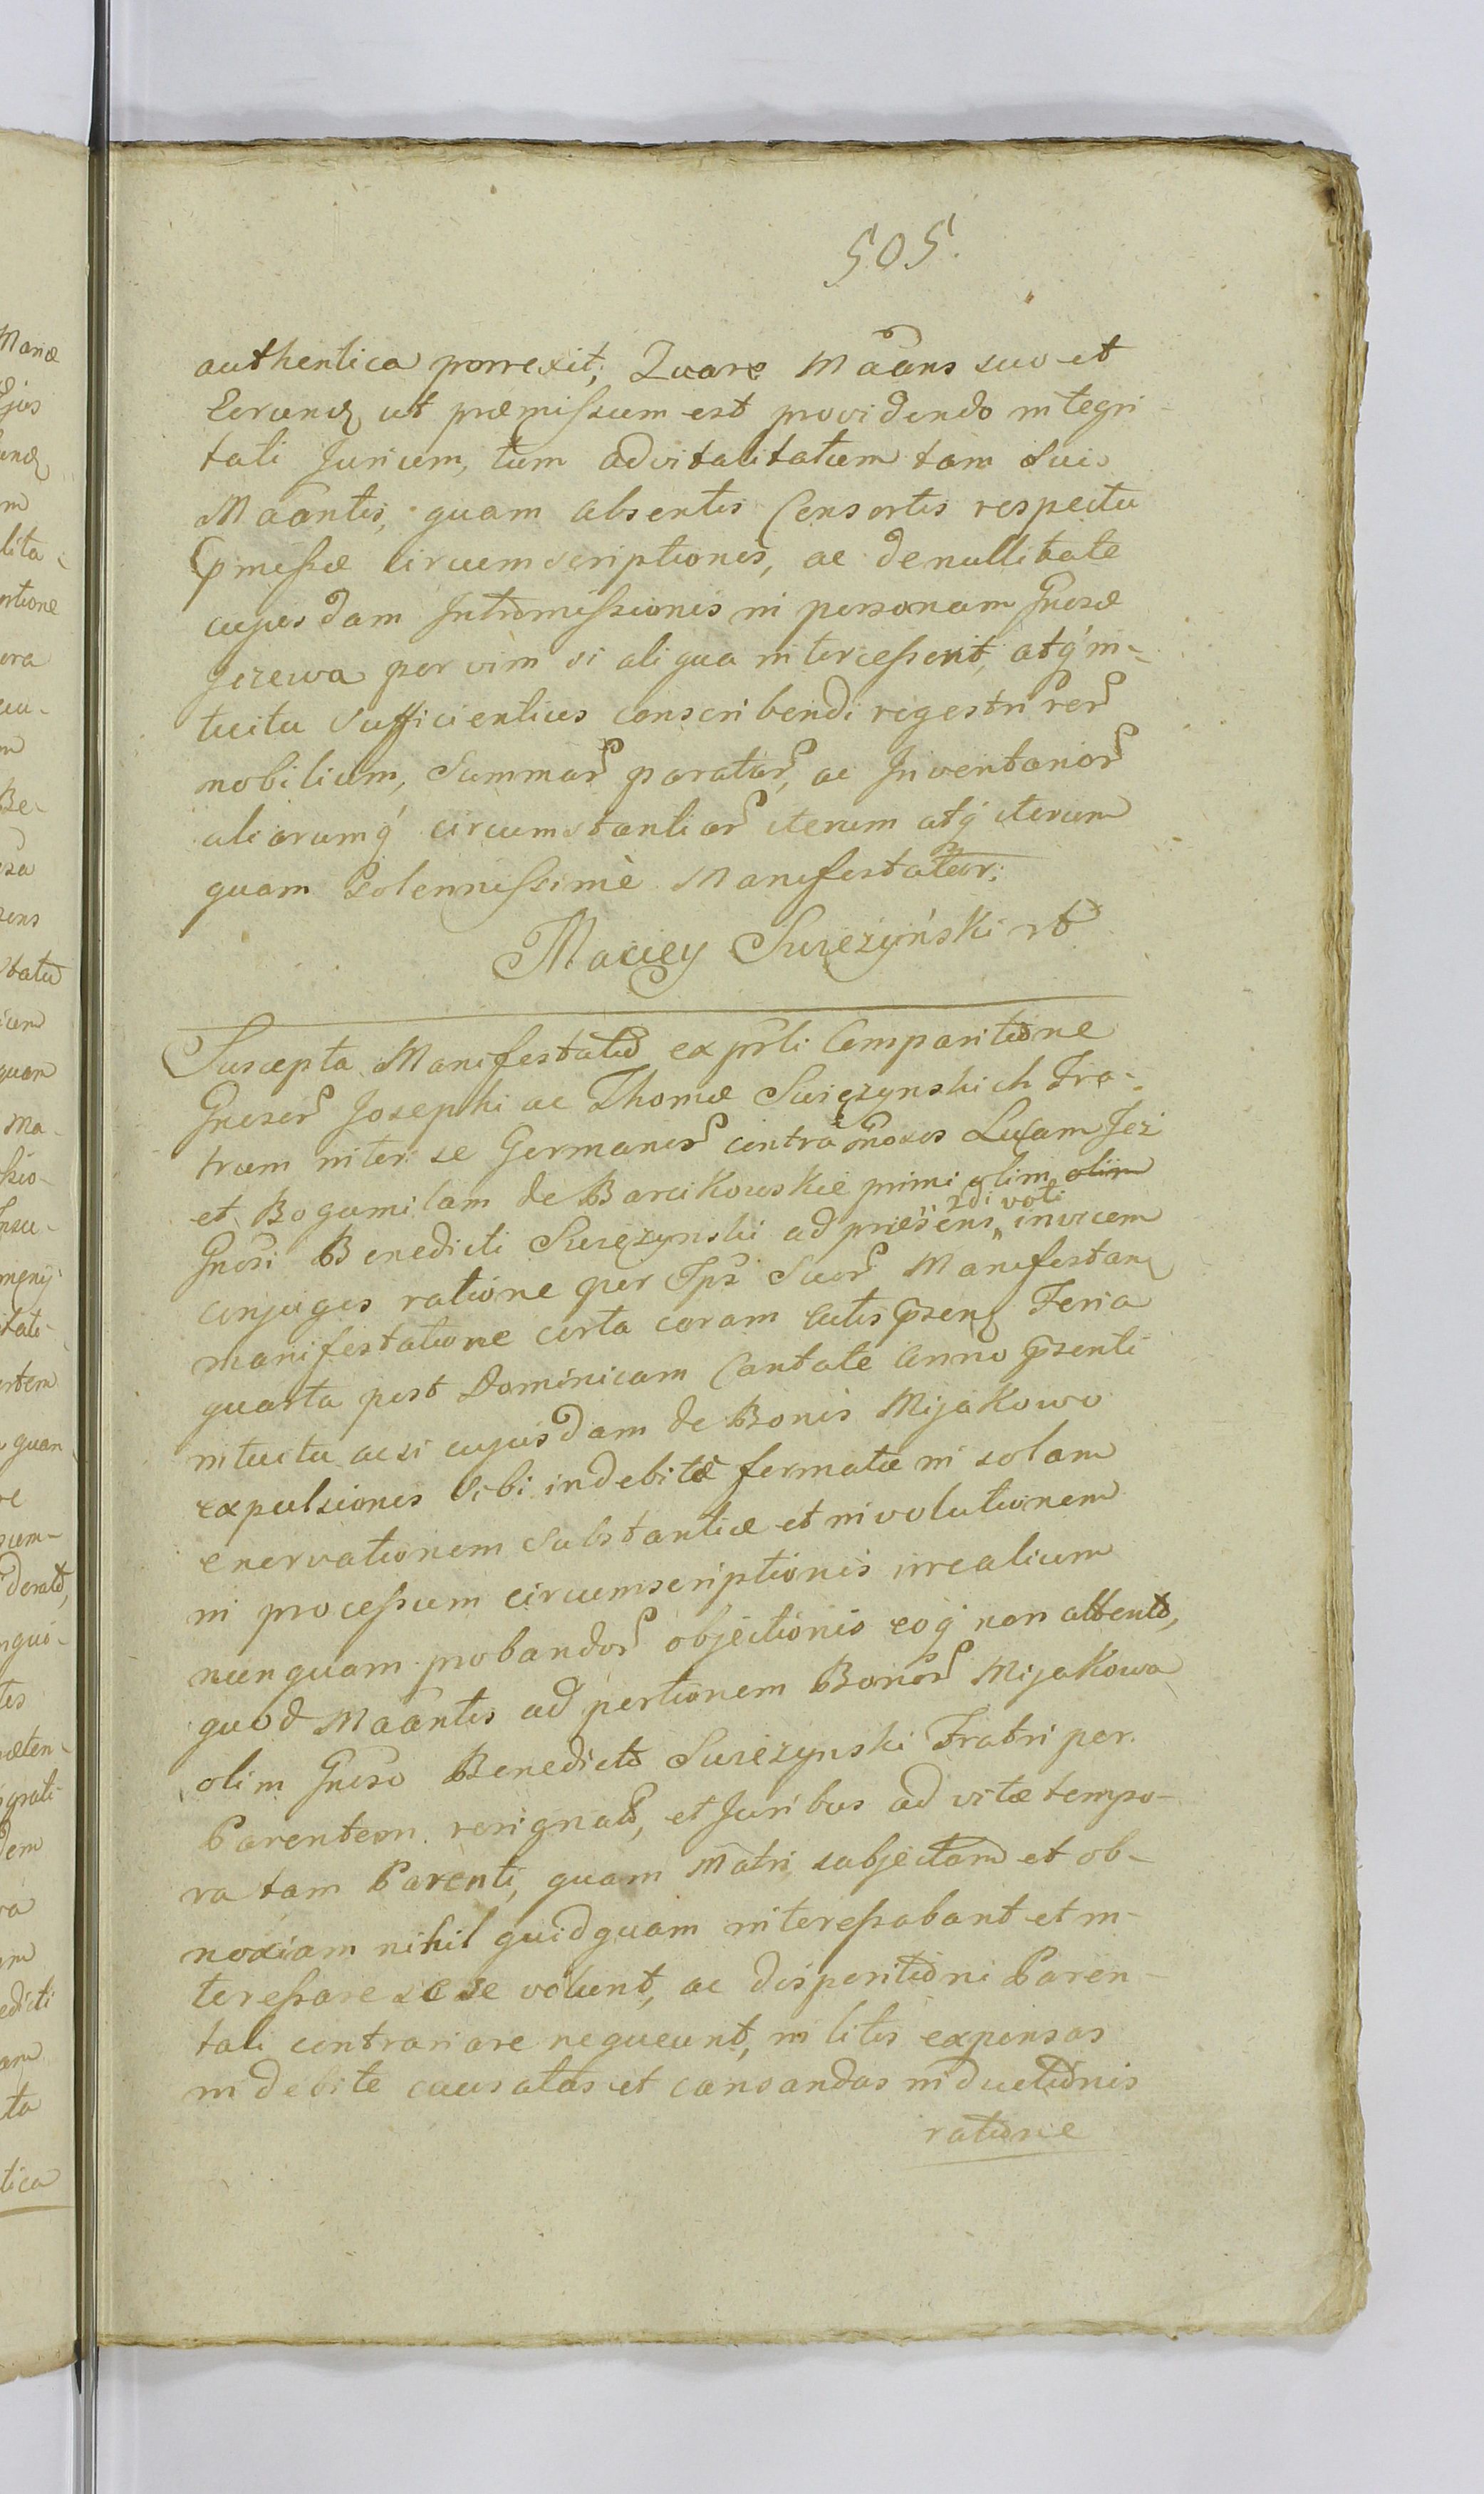 505.
authentica porrexit; Quare Mãans suo et
Eorund ut præmissum est providendo integri
tati Jurium, tum advitalitatum tam sui
Mãantis, quam absentis Consortis respectu
pmissæ circumscriptionis, ac de nullitate
cujusdam Intromissionis in personam Gnosæ
Jezewa per vim si aliqua intercesserit, atq' in-
tuitu sufficientius conscribendi regestri rer
mobilium, Summar paratar, ac Inventarior
aliarumq' circumstantiar iterum atq' iterum
quam Solennissimè Manifestatur.
Maciey Swiezyński
Suscepta Manifestatio ex psli Comparitione
Gnosor Josephi ac Thomæ Swięzynskich Fra-
trum inter se Germanor contra Gnosos Lucam Jez
et Bogumilam de Barcikowskie primi olim olim
Gnosi Benedicti Swięzynski ad præsens 2di voti invicem
conjuges ratione per Ips Suor Manifestan
manifestatione certa coram Actis psen Feria
quarta post Dominicam Cantate Anno psenti
intuitu acsi cujusdam de Bonis Mijakowo
expulsionis sibi indebitæ formatæ in solam
enervationem substantiæ et involutionem
in processum circumscriptionis irrealium
nunquam probandor objectionis eoq' non attento,
quod Mãantes ad portionem Bonor Mijakowa
olim Gnoso Benedicto Swiezynski Fratri per
Parentem resignato, et Juribus ad vitæ tempo-
ra tam Parenti, quam Matri, subjectam et ob-
noxiam nihil quidquam interessabant et in-
teressare sese volunt, ac dispositioni Paren-
tali contrariare nequeunt, in litis expensas
indebite causatas et causandas inductionis
ratione